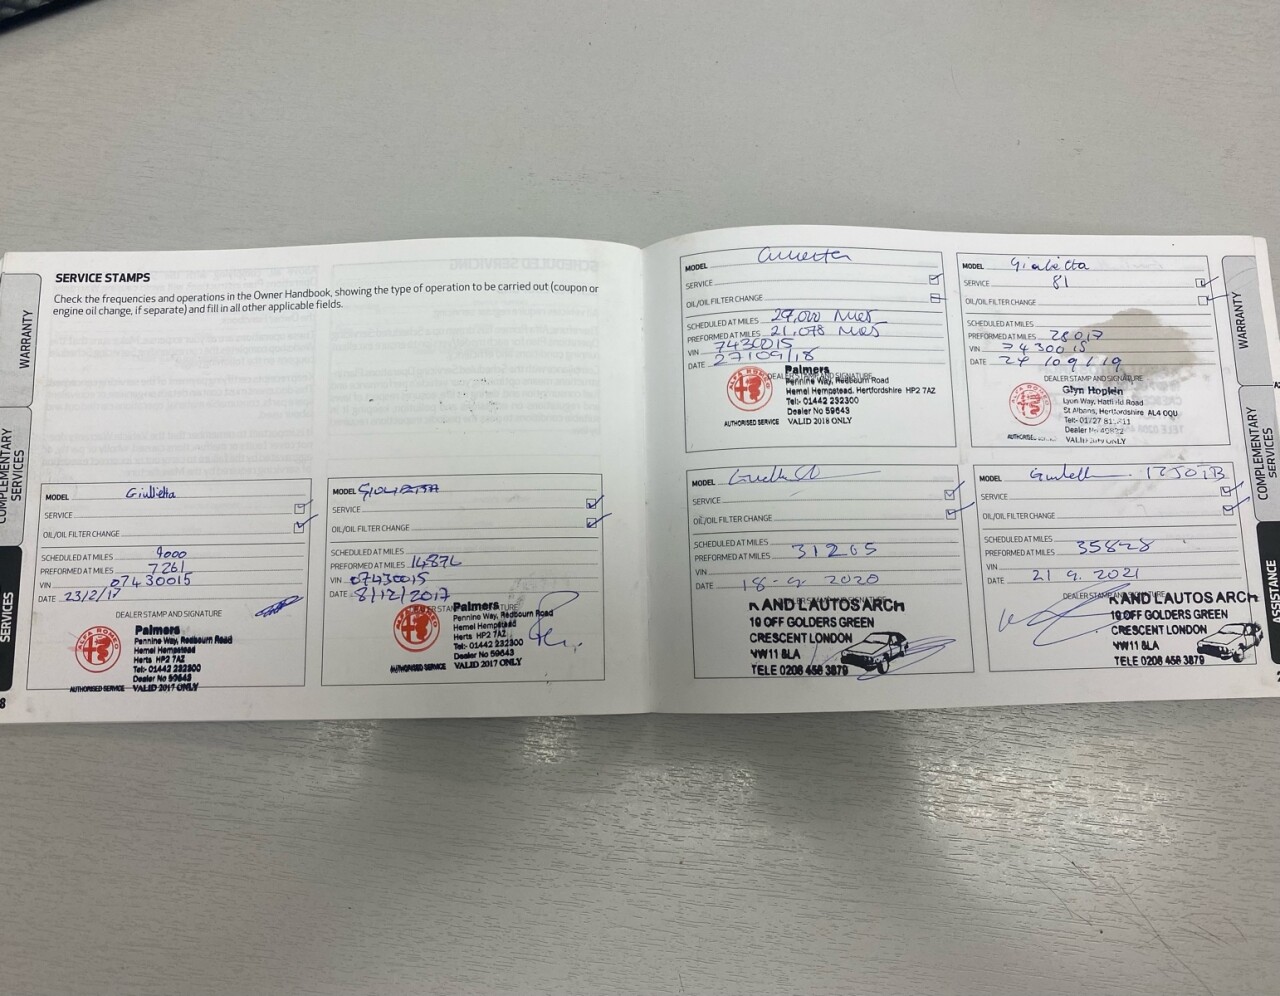 SERVICE STAMPS
Check the frequencies and operations in the Owner Handbook, showing the type of operation to be carried out (coupon or
engine oil change, if separate) and fill in all other applicable fields.
WARRANTY
COMPLEMENTARY
SERVICES
SERVICES
8
MODEL Giulietta
SERVICE
OIL/OIL FILTER CHANGE
SCHEDULED AT MILES 9000
PREFORMED AT MILES 7261
VIN 07430015
DATE 23/2/17
DEALER STAMP AND SIGNATURE
ALFA ROMEO
Palmers
Pennine Way, Redbourn Road
Hemel Hempstead
Herts HP2 7AZ
Tel:- 01442 232300
Dealer No 59643
AUTHORISED SERVICE VALID 2017 ONLY
MODEL GIULIETTA
SERVICE
OIL/OIL FILTER CHANGE
SCHEDULED AT MILES
PREFORMED AT MILES 14876
VIN 07430015
DATE 8/12/2017
ALFA ROMEO
Palmers
Pennine Way, Redbourn Road
Hemel Hempstead
Herts HP2 7AZ
Tel:- 01442 232300
Dealer No 59643
AUTHORISED SERVICE VALID 2017 ONLY
MODEL
SERVICE
OIL/OIL FILTER CHANGE
SCHEDULED AT MILES 27,000 MILES
PREFORMED AT MILES 21,078 MILES
VIN 7430015
DATE 27/09/18
DEALER STAMP AND SIGNATURE
ALFA ROMEO
Palmers
Pennine Way, Redbourn Road
Hemel Hempstead, Hertfordshire HP2 7AZ
Tel:- 01442 232300
Dealer No 59643
AUTHORISED SERVICE VALID 2018 ONLY
MODEL Giulietta
SERVICE 81
OIL/OIL FILTER CHANGE
SCHEDULED AT MILES
PREFORMED AT MILES 28017
VIN 7430015
DATE 24/09/19
DEALER STAMP AND SIGNATURE
ALFA ROMEO
Glyn Hopkin
Lyon Way, Hatfield Road
St Albans, Hertfordshire AL4 0QU
VALID 2019 ONLY
MODEL
SERVICE
OIL/OIL FILTER CHANGE
SCHEDULED AT MILES
PREFORMED AT MILES 31265
VIN
DATE 18-9-2020
K AND L AUTOS ARCH
10 OFF GOLDERS GREEN
CRESCENT LONDON
NW11 8LA
TELE 0208 458 3879
MODEL
SERVICE
OIL/OIL FILTER CHANGE
SCHEDULED AT MILES
PREFORMED AT MILES 35828
VIN
DATE 21 9. 2021
K AND L AUTOS ARCH
10 OFF GOLDERS GREEN
CRESCENT LONDON
NW11 8LA
TELE 0208 458 3879
WARRANTY
COMPLEMENTARY
SERVICES
ASSISTANCE